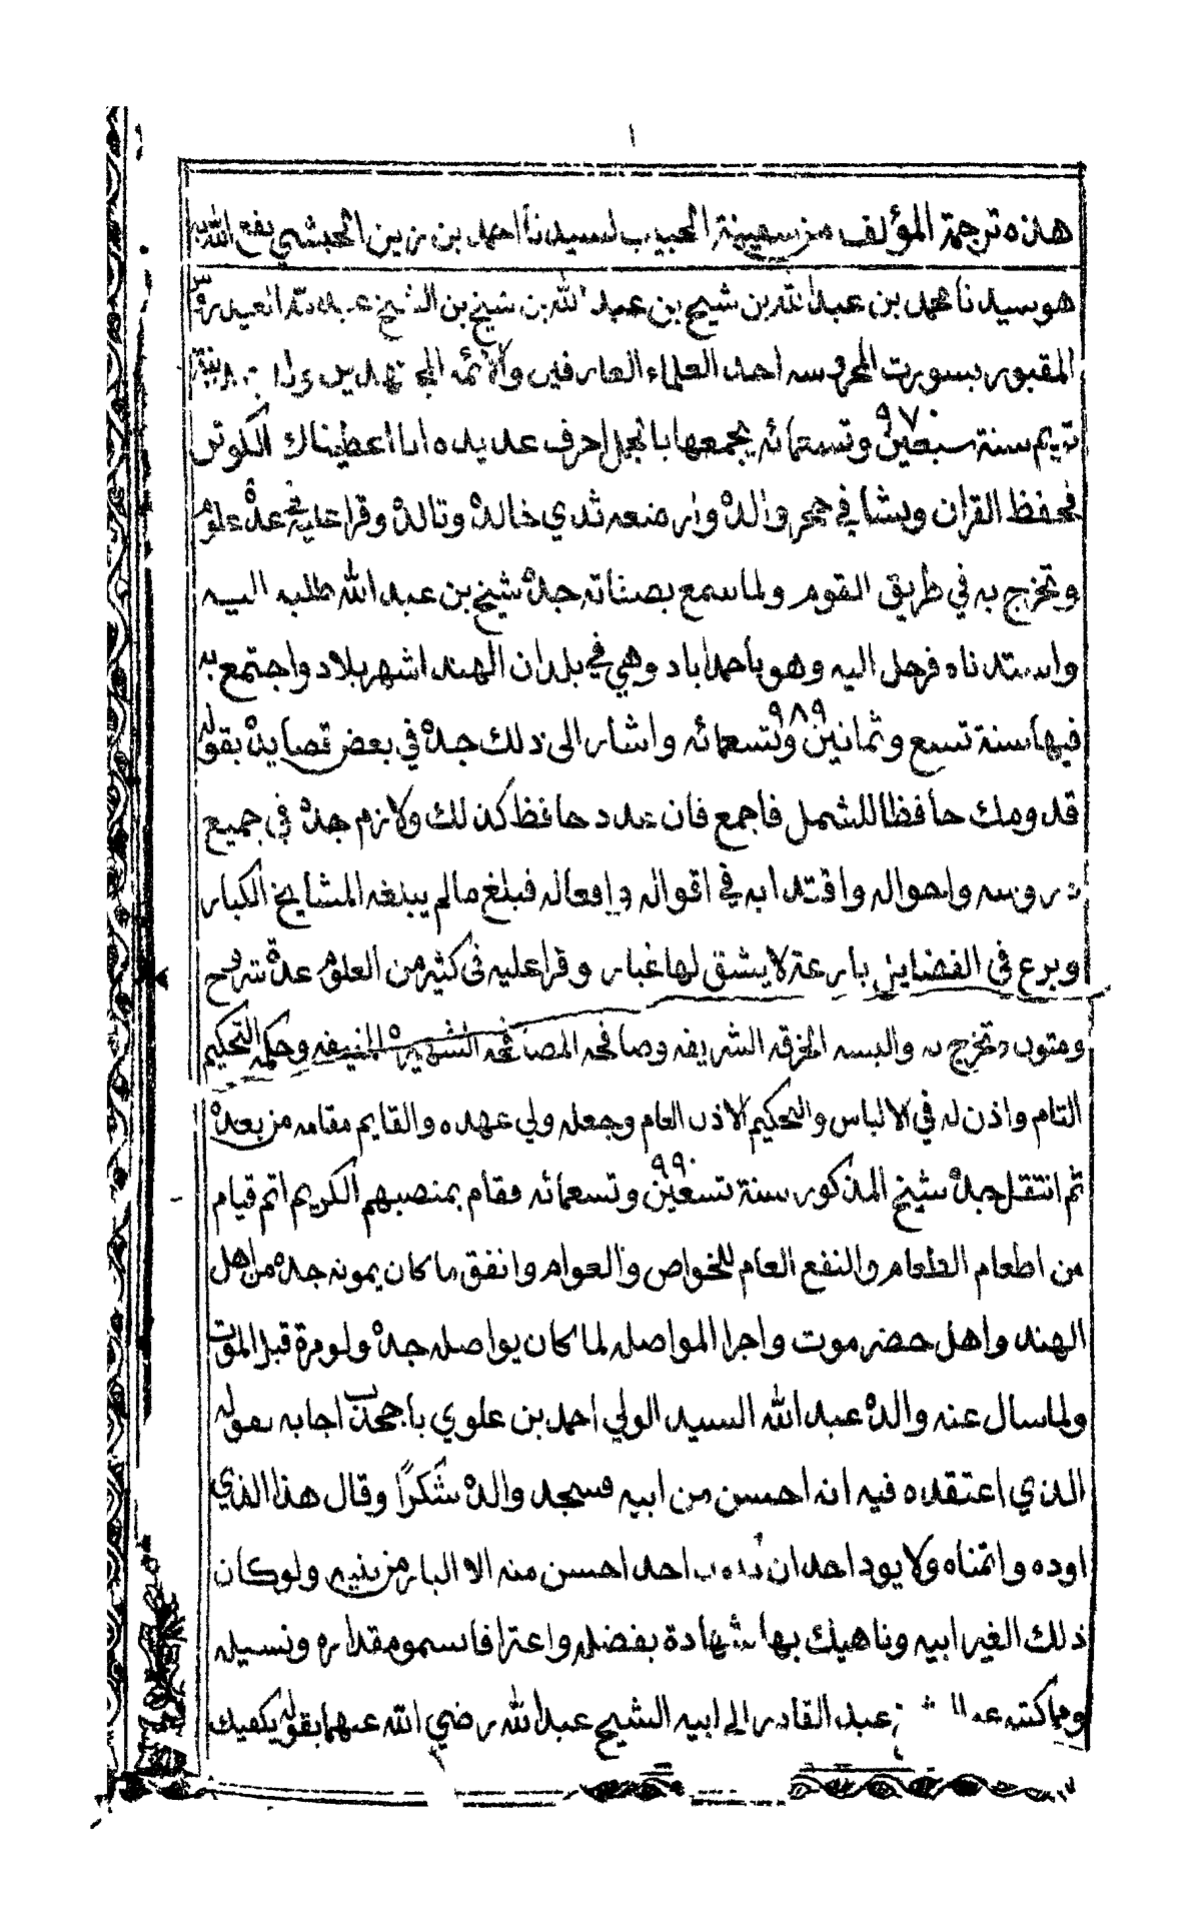 ١
هذه ترجمة المؤلف من سفينة الحبيب لسيدنا احمد بن زين الحبشي نفع الله به
هو سيدنا محمد بن عبد الله بن شيخ بن عبد الله بن شيخ بن الشيخ عبد الله العيدروس
المقبور بسورت المحروسه احد العلماء العارفين والائمه المجتهدين ولد بمدينة
تريم سنة سبعين ٩٧٠ وتسعمائه يجمعها بالجمل احرف عديده انا اعطيناك الكوثر
فحفظ القران ونشا في حجر والده وارضعه ثدي خالده وتالده وقرا عليه في عدة علوم
وتخرج به في طريق القوم ولما سمع بصفاته جده شيخ بن عبد الله طلبه اليه
واستدناه فرحل اليه وهو باحمداباد وهي في بلدان الهند اشهر بلاد واجتمع به
فيها سنة تسع وثمانين ٩٨٩ وتسعمائه واشار الى ذلك جده في بعض قصايده بقوله
قدومك حافظا للشمل فاجمع فان عدد حافظ كذلك ولازم جده في جميع
دروسه واحواله واقتدا به في اقواله وافعاله فبلغ مالم يبلغه المشايخ الكبار
وبرع في الفضايل بارعة لا يشق لها غبار وقرا عليه في كثير من العلوم عدة شروح
ومتون وتخرج به والبسه الخرقه الشريفه وصافحه المصافحه الشهيره المنيفه وحكمه التحكيم
التام واذن له في الالباس والتحكيم الاذن العام وجعله ولي عهده والقايم مقامه من بعده
ثم انتقل جده شيخ المذكور سنة تسعين ٩٩٠ وتسعمائه فقام بمنصبهم الكريم اتم قيام
من اطعام الطعام والنفع العام للخواص والعوام وانفق ما كان يمونه جده من اهل
الهند واهل حضرموت واجرا المواصله لما كان يواصله جده ولو مرة قبل الموت
ولما سال عنه والده عبد الله السيد الولي احمد بن علوي باجحدب اجابه بقوله
الذي اعتقده فيه انه احسن من ابيه فسجد والده شكرًا وقال هذا الذي
اوده واتمناه ولا يود احد ان احد احسن منه الا البار من بنيه ولو كان
ذلك الغير ابيه وناهيك بها شهادة بفضله واعترافا بسمو مقداره ونسيله
ومما كتبه عبد القادر الى ابيه الشيخ عبد الله رضي الله عنهما بقوله يكفيك